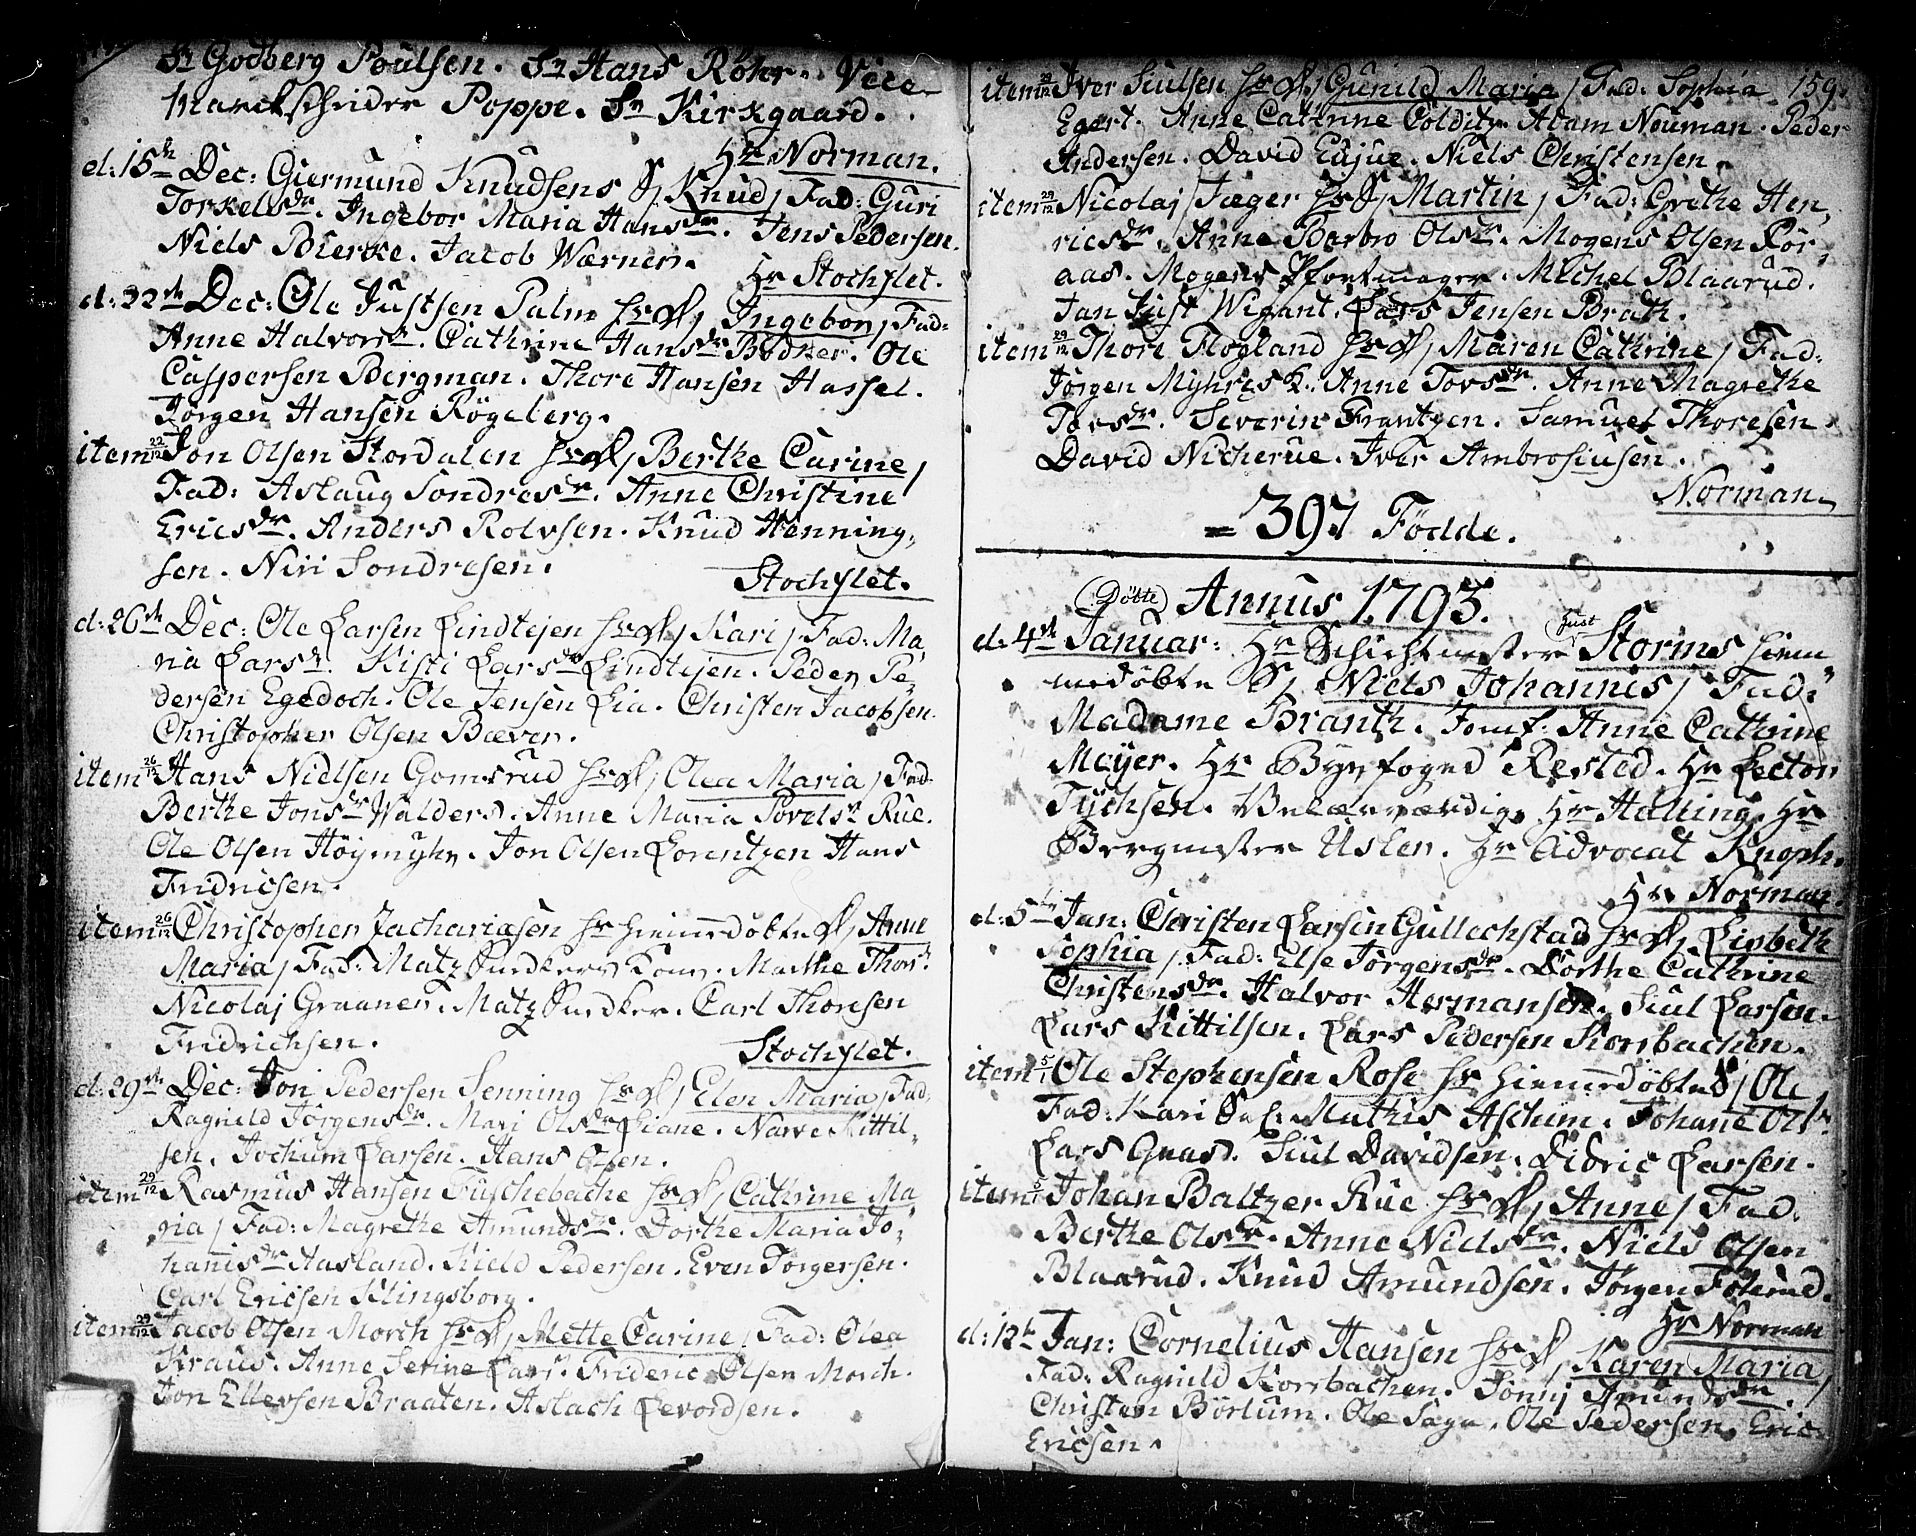 Sr Godberg Poulsen. Sr Hans Röhr. Vice
Marckscheider Poppe. Sr Kirkgaard.
Hr Norman.
d: 15de Dec: Giermund Knudsens S, Knud, Fad: Guri
Torkelsdr. Ingebor Maria Hansdr. Jens Pedersen.
Niels Bierke. Jacob Wærner.
Hr Stochflet.
d: 22de Dec: Ole Justsen Palm hs D, Ingebor, Fad:
Anne Halvorsdr. Cathrine Hansdr Bødker. Ole
Caspersen Bergman. Thore Hansen Hassel.
Jørgen Hansen Røgeberg.
item 22/12 Jon Olsen Stordalen hs D, Berthe Carine,
Fad: Aslaug Sondresdr. Anne Christine
Ericsdr. Anders Rolvsen. Knud Henning,
sen. Niri Sondresen.
Stochflet.
d: 26de Dec: Ole Larsen Lindtejen hs D, Kari, Fad: Ma,
ria Larsdr. Kisti Larsdr Lindtejen. Peder Pe,
dersen Egedoch. Ole Jensen Lia. Christen Jacobsen.
Christopher Olsen Bæver.
item 26/12 Hans Nielsen Gomsrud hs D, Olea Maria, Fad:
Berthe Jonsdr Walders. Anne Maria Povelsdr Rue.
Ole Olsen Höymyhr. Jon Olsen Lorentzen Hans
Fridricsen.
item 26/12 Christopher Zachariasen hs hiemmedøbte D, Anne
Maria, Fad: Matz Snedkers Kone. Marthe Thorsdr.
Nicolaj Graaner. Matz Snedker. Carl Thoresen
Fridrichsen.
Stochflet.
d: 29de Dec: Jon Pedersen Senning hs D, Elen Maria, Fad:
Ragnild Jörgensdr. Mari Olsdr Liane. Narve Kittil,
sen. Jochum Larsen. Hans Olsen.
item 29/12 Rasmus Hansen Tuschebache hs D, Cathrine Ma
ria, Fad: Magrethe Amundsdr. Dorthe Maria Jo,
hannisdr Aasland. Kield Pedersen. Even Jørgersen.
Carl Ericsen Klingsborg.
item 29/12 Jacob Olsen Morch hs D, Mette Carine, Fad: Olea
Kraus. Anne Serine Larsdr. Frideric Olsen Morch.
Jon Ellevsen Braaten. Aslach Levordsen.
item 29/12 Iver Siulsen hs D, Gunild Maria, Fad: Sophia 159.
Egert. Anne Cathrine Colditz. Adam Neuman. Peder
Andersen. David Eujue. Niels Christensen.
item 29/12 Nicolaj Jæger hs S, Martin, Fad: Grethe Hen,
ricsdr. Anne Barbro Olsdr. Mogens Olsen Rør,
aas. Mogens Pfortmager. Michel Blaarud.
Jan Just Wigant. Lars Jensen Brath.
item 29/12 Thore Flogland hs D, Maren Cathrine, Fad:
Jørgen Myhres K. Anne Torsdr. Anne Magrethe
Torsdr. Severin Frantzen. Samuel Thoresen.
David Nicherue. Iver Ambrosiusen.
Norman.
= 397 Födde.
Döbte Annus 1793.
d: 4de Januar: Hr Schichtmester Just Storms hiem
medøbte S, Niels Johannes, Fad:
Madame Branth. Jomf: Anne Cathrine
Meyer. Hr Byefoged Rested. Hr Lector
Tychsen. Velærværdige Hr Halling. Hr
Bergmester Usler. Hr Advocat Knoph.
Hr Norman.
d: 5te Jan: Christen Larsen Gullechstad hs D, Lisbeth
Sophia, Fad: Else Jørgensdr. Dorthe Cathrine
Christensdr. Halvor Hermansen. Siul Larsen.
Lars Kittilsen. Lars Pedersen Korsbachen.
item 5/1 Ole Stephensen Rose hs hiemmedøbte S, Ole
Fad: Kari Mathis Aschim. Johane Olsdr.
Lars Gnas. Siul Davidsen. Didric Larsen.
item Johan Baltzer Rue hs D, Anne, Fad:
Berthe Olsdr. Anne Nielsdr. Niels Olsen
Blaarud. Knud Amundsen. Jørgen Folerud.
Hr Norman
d: 12te Jan: Cornelius Hansen hs D, Karen Maria,
Fad: Ragnild Korsbachen. Jönnij Amundsdr.
Christen Börlum. Ole Saga. Ole Pedersen. Eric
Ericsen.